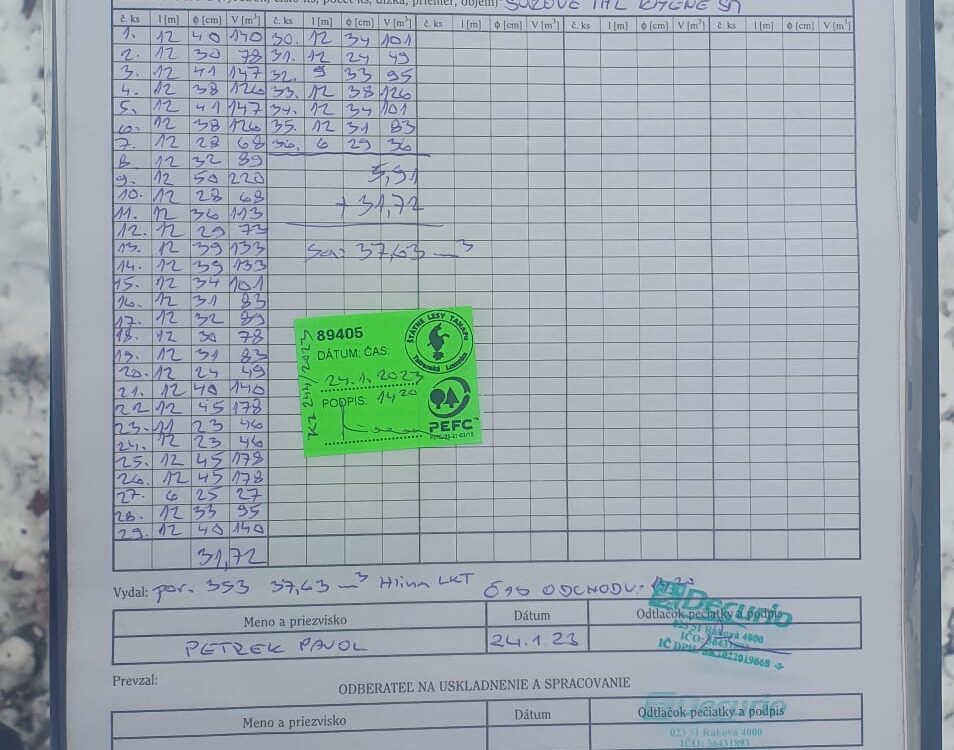 č. ks l [m] ϕ [cm] V [m³] č. ks l [m] ϕ [cm] V [m³] č. ks l [m] ϕ [cm] V [m³] č. ks l [m] ϕ [cm] V [m³] č. ks l [m] ϕ [cm] V [m³]
1. 12 40 140 30. 12 34 101
2. 12 30 78 31. 12 24 49
3. 12 41 147 32. 9 33 95
4. 12 38 126 33. 12 38 126
5. 12 41 147 34. 12 34 101
6. 12 38 126 35. 12 31 83
7. 12 28 68 36. 6 29 36
8 12 32 89
9. 12 50 220
10. 12 28 68
11. 12 36 113
12. 12 29 73
13. 12 39 133
14. 12 39 133
15. 12 34 101
16. 12 31 83
17. 12 32 89
18. 12 30 78
19. 12 31 83
20. 12 24 49
21. 12 40 140
22 12 45 178
23. 11 23 46
24. 12 23 46
25. 12 45 178
26. 12 45 178
27. 6 25 27
28. 12 33 95
29. 12 40 140
31,72
5,91
+ 31,72
37,63 m³
89405
DÁTUM: ČAS:
24.1.2023
PODPIS: 14,20
ŠTÁTNE LESY TANAPu
Tatranská Lomnica
PEFC
Vydal: por. 353 37,63 m³ Hlina LKT ČAS ODCHODU:
Meno a priezvisko Dátum Odtlačok pečiatky a podpis
PETREK PAVOL 24.1.23
Decurio
023 51 Raková 4000
Prevzal:
ODBERATEĽ NA USKLADNENIE A SPRACOVANIE
Meno a priezvisko Dátum Odtlačok pečiatky a podpis
Decurio
023 51 Raková 4000
IČO: 36431893